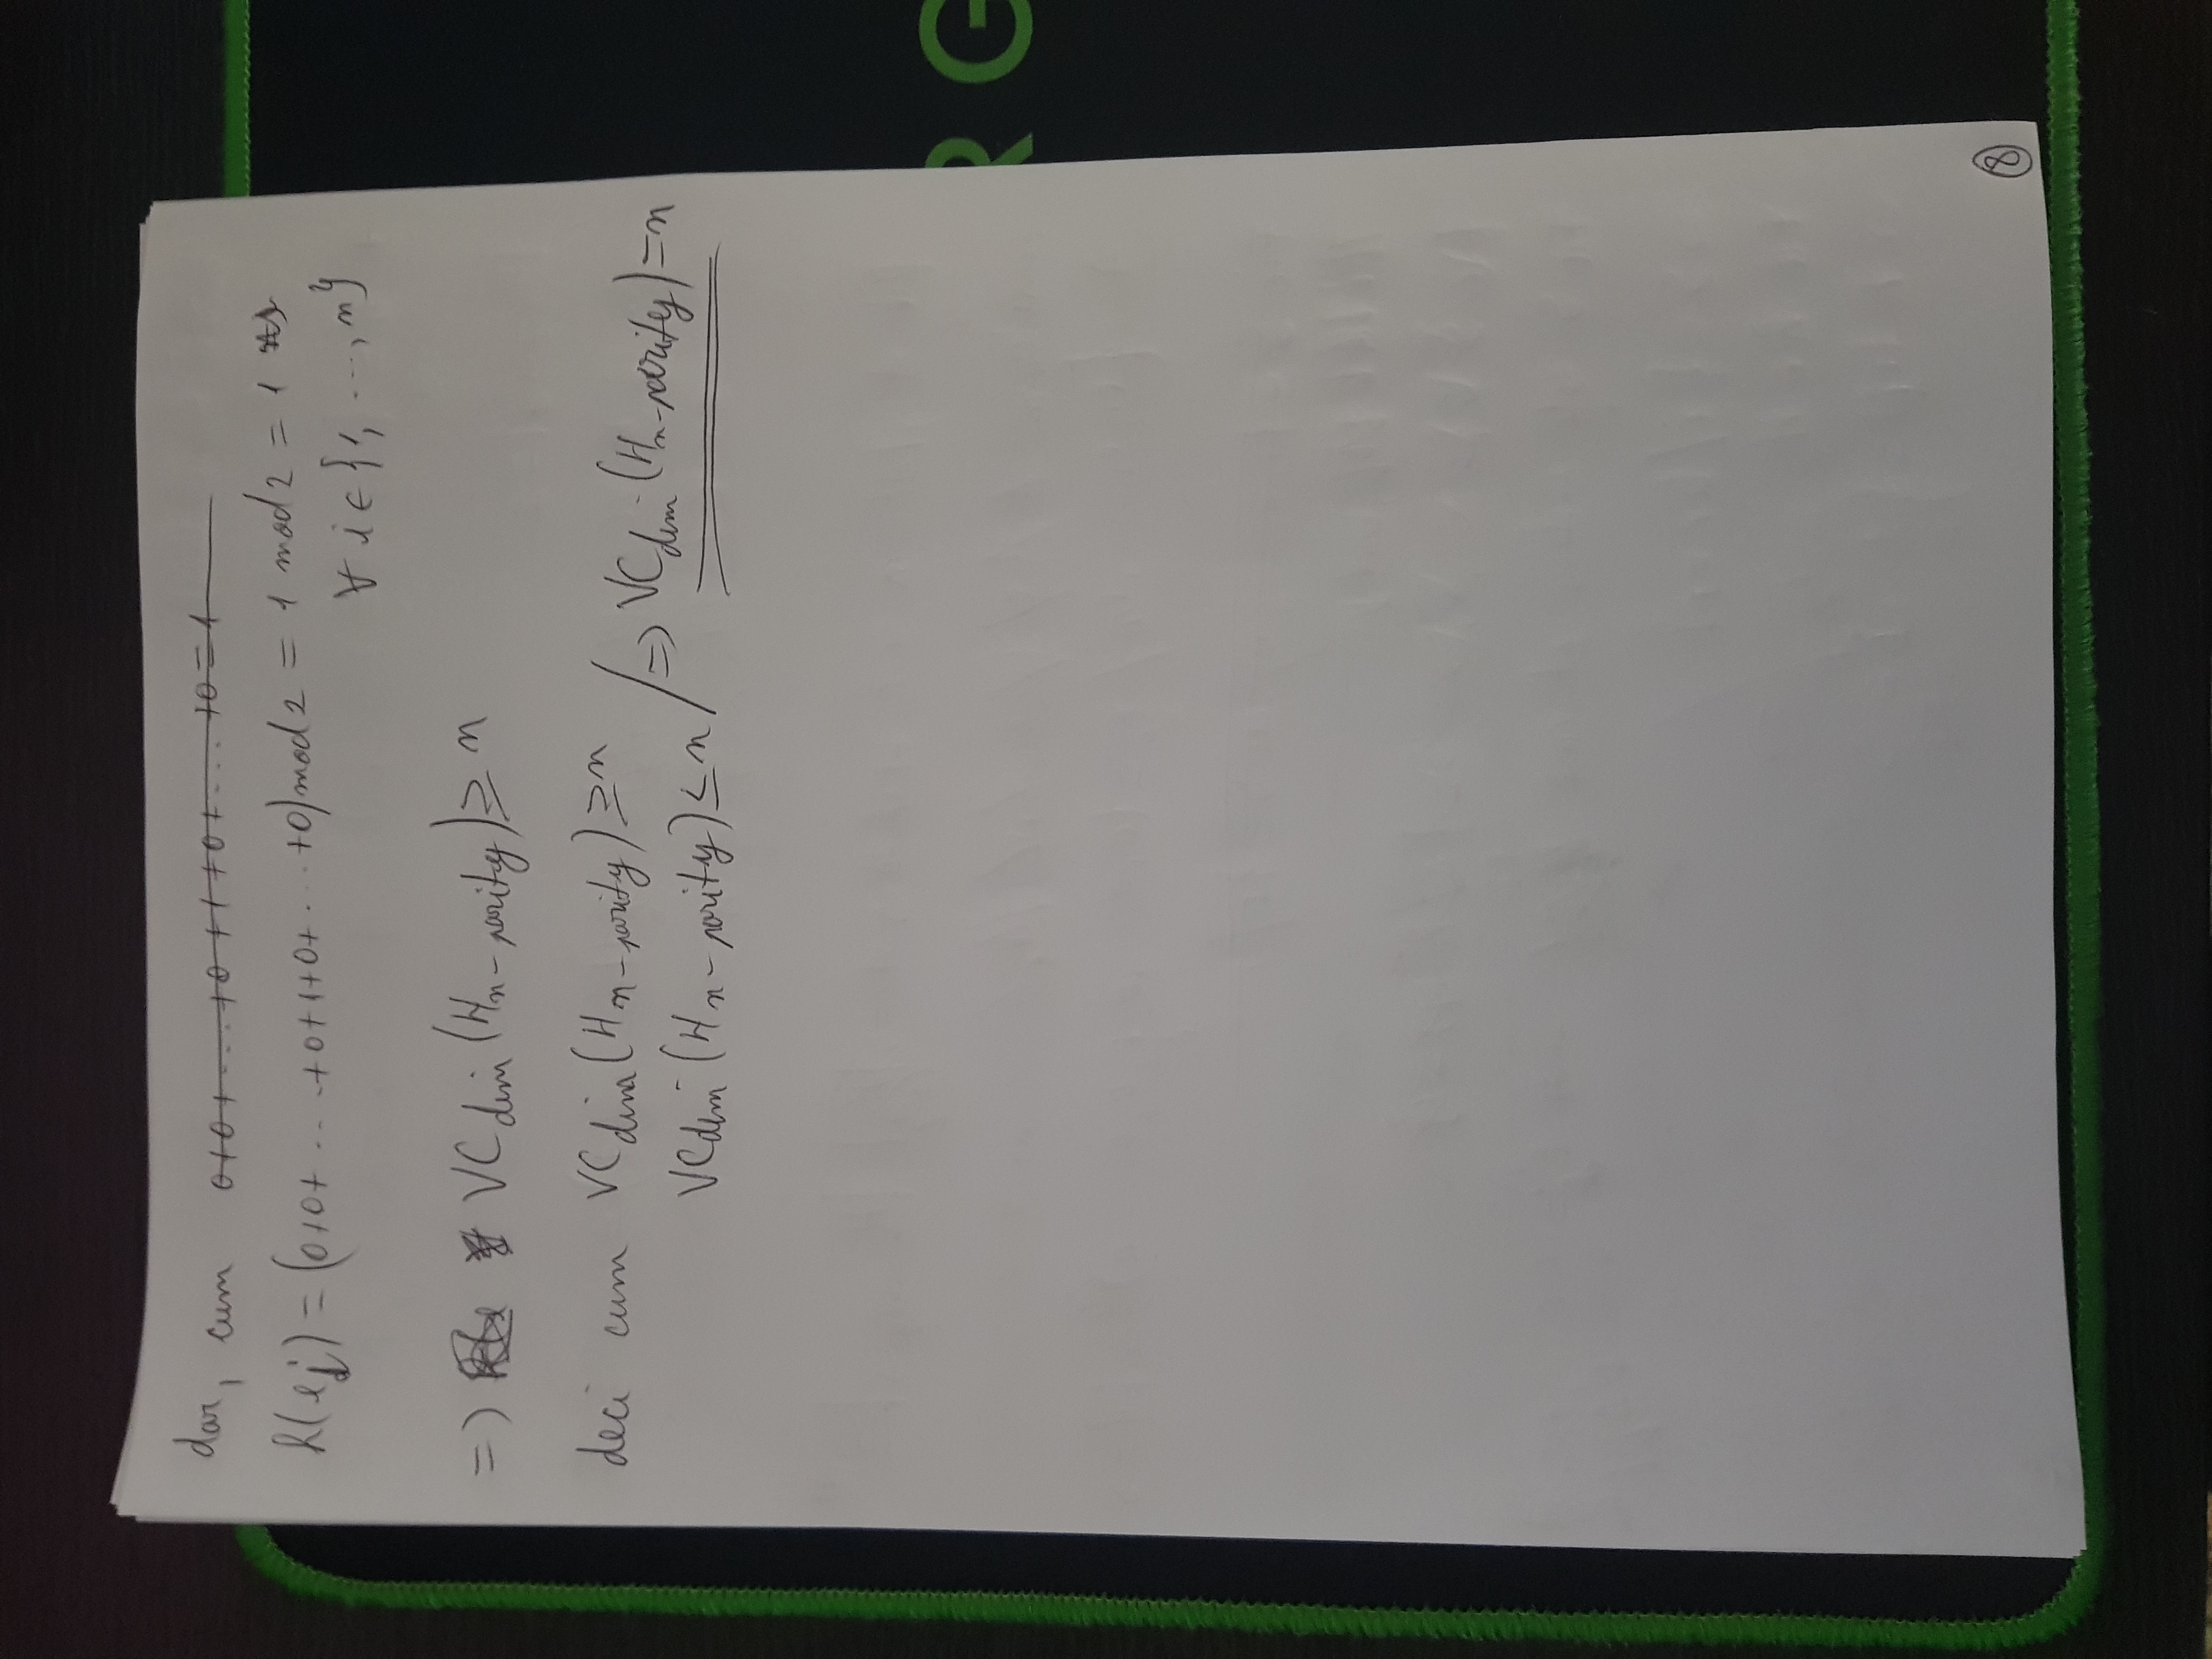 dar, cum 0+0+...+0+1+0+...+0=1
h(ej) = (0+0+...+0+1+0+...+0) mod 2 = 1 mod 2 = 1
∀ i ∈ {1, ..., n}
=) VCdim (Hn-parity) ≥ n
deci cum VCdim (Hn-parity) ≥ n
VCdim (Hn-parity) ≤ n / => VCdim (Hn-parity) = n
RG
8